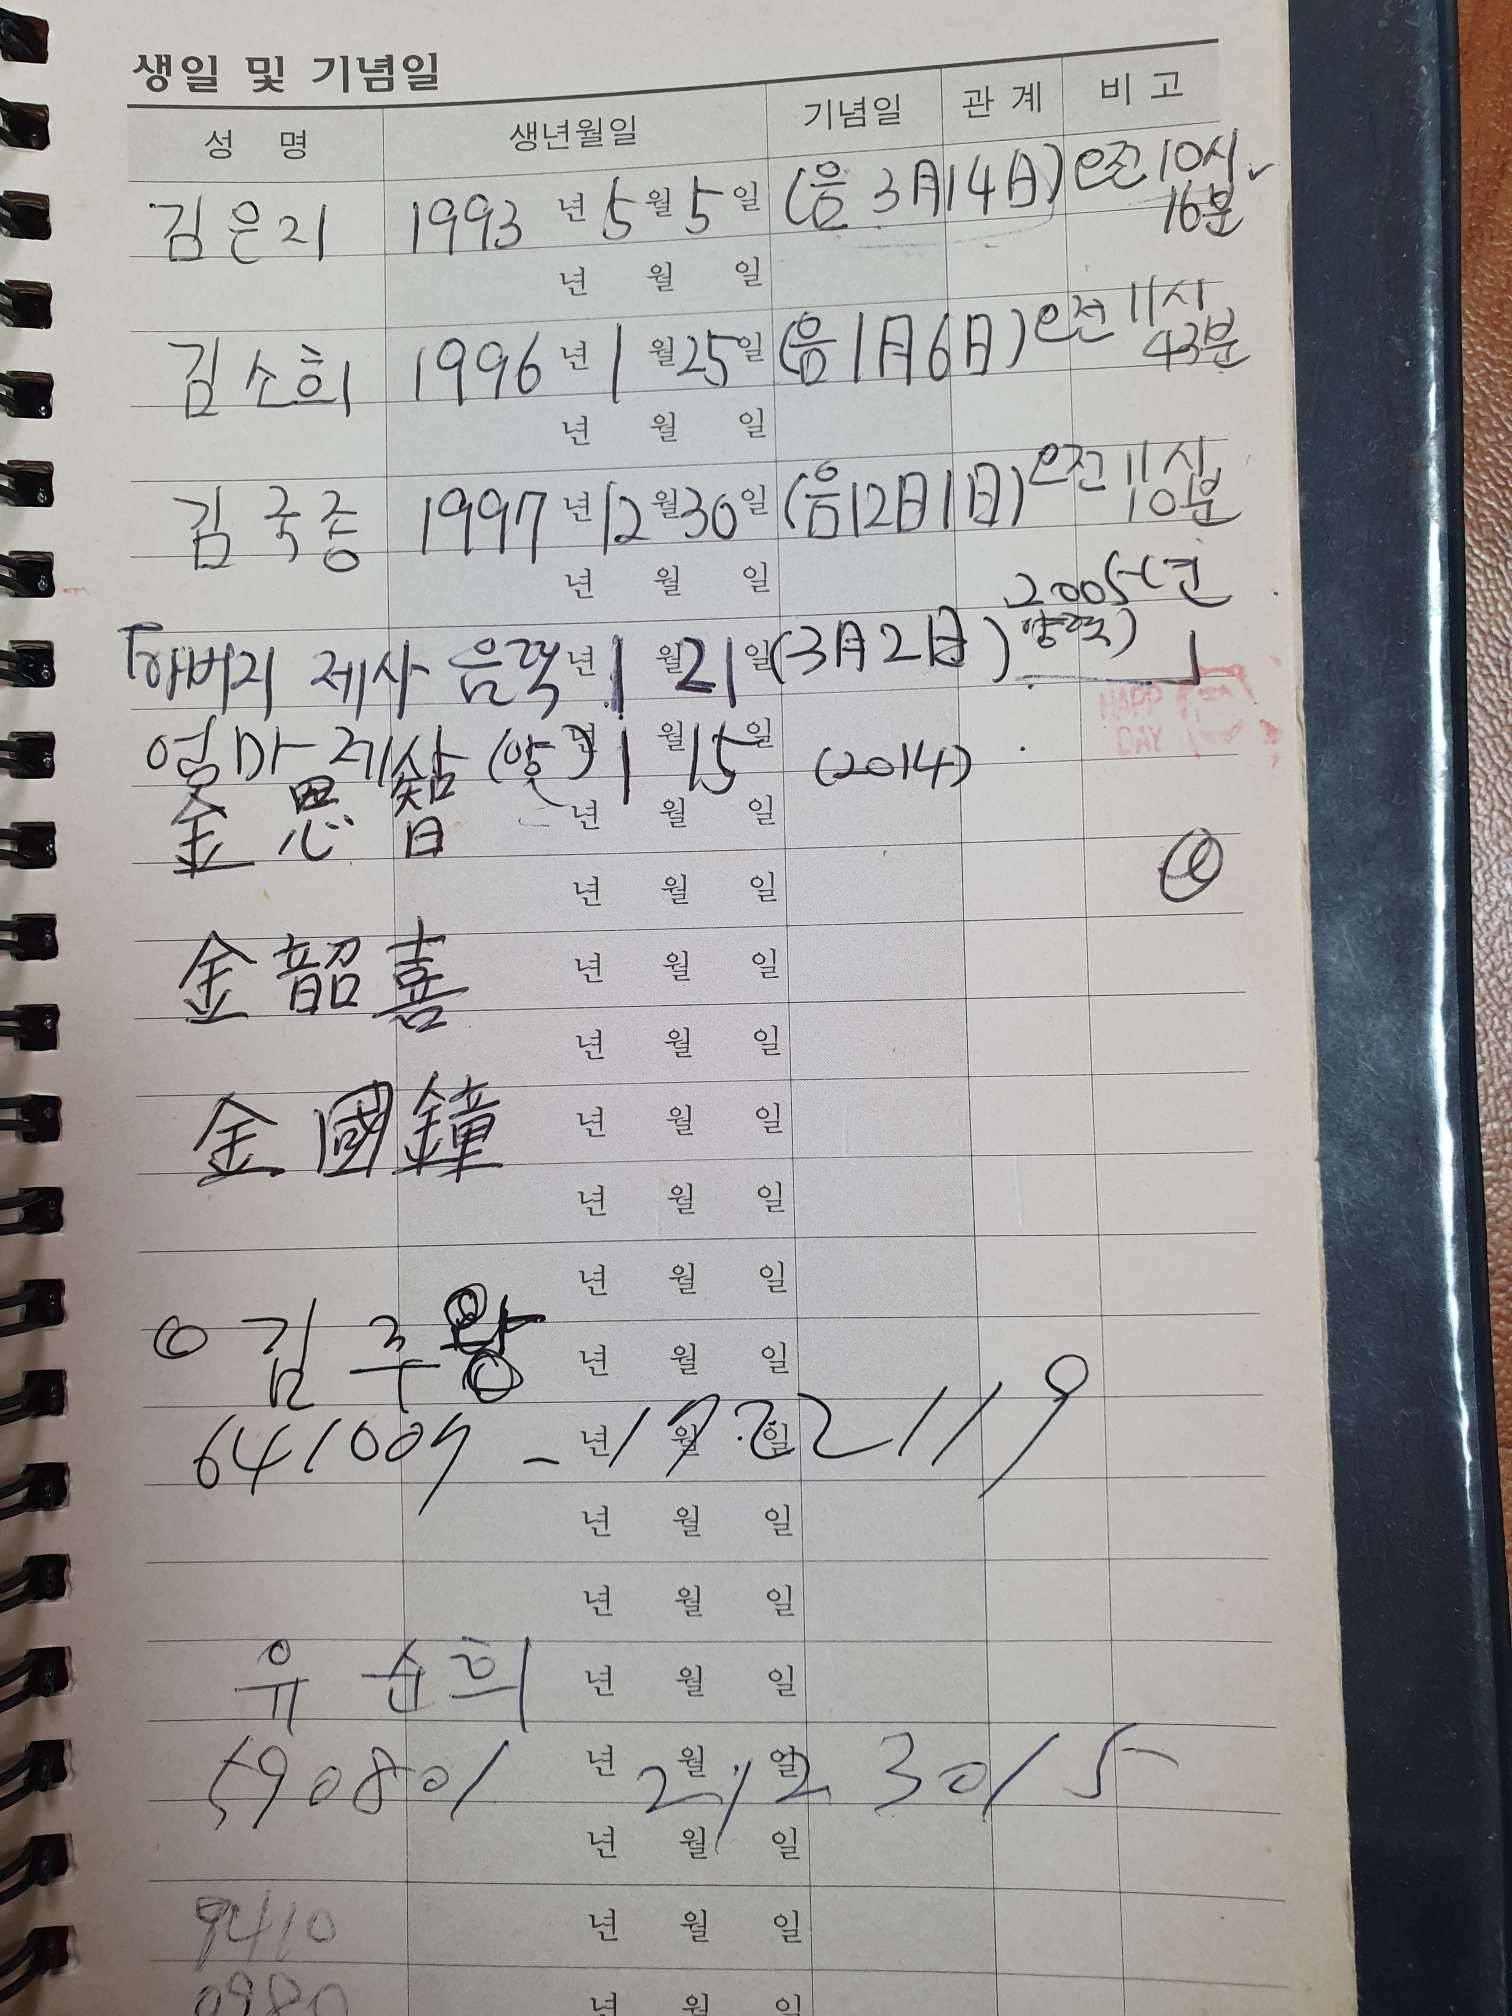 생일 및 기념일
성 명 생년월일 기념일 관 계 비 고
김은지 1993 년 5 월 5 일 (음 3月14日) 오전 10시 16분
년 월 일
김소희 1996 년 1 월 25 일 (음 1月6日) 오전 11시 43분
년 월 일
김국종 1997 년 12 월 30 일 (음 12月1日) 오전 11시 10분
년 월 일
2005년
아버지 제사 음력 년 1 월 21 일 (3月2日 양력)
HAPP DAY
엄마 제삿 (양) 년 1 월 15 일 (2014)
金恩智 년 월 일
년 월 일
金韶喜 년 월 일
년 월 일
金國鐘 년 월 일
년 월 일
년 월 일
김주황 년 월 일
641009 - 년 월 일 1922119
년 월 일
년 월 일
유순희 년 월 일
590801 년 월 일 2123015
년 월 일
9410 년 월 일
0980 년 월 일